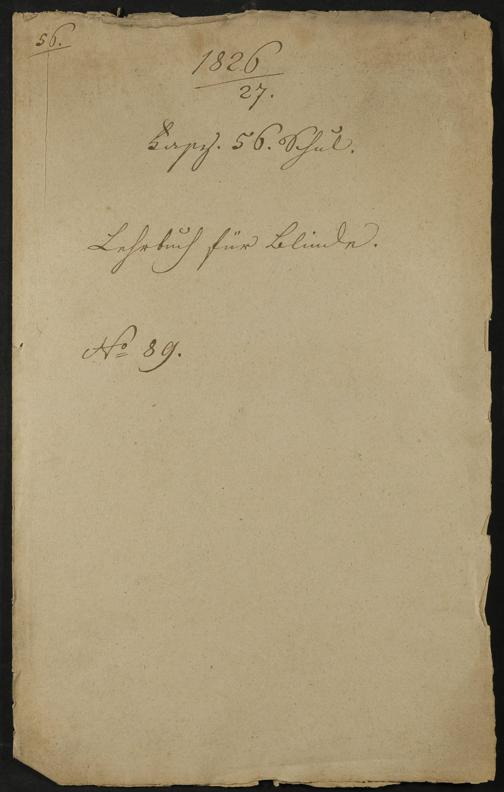 56.
1826
27.
Kaps. 56. Schul.
Lehrbuch für Blinde.
No 89.